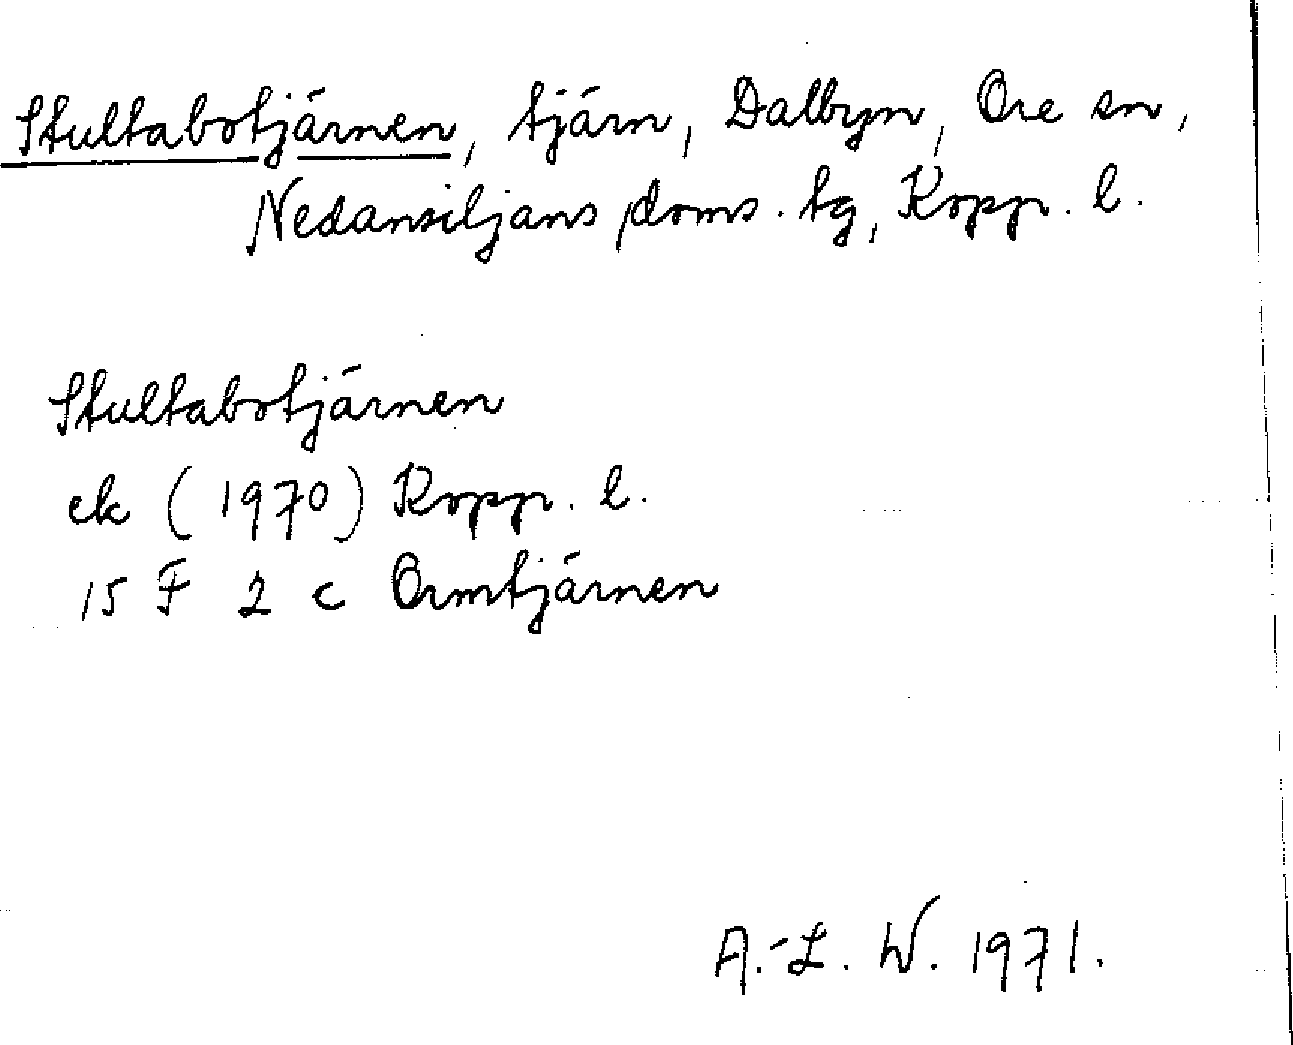 Stultabotjärnen, tjärn, Dalbyn, Ore sn,
Nedansiljans doms. tg, Kopp. l.
Stultabotjärnen
ek (1970) Kopp. l.
15 F 2 c Ormtjärnen
A.-L. W. 1971.